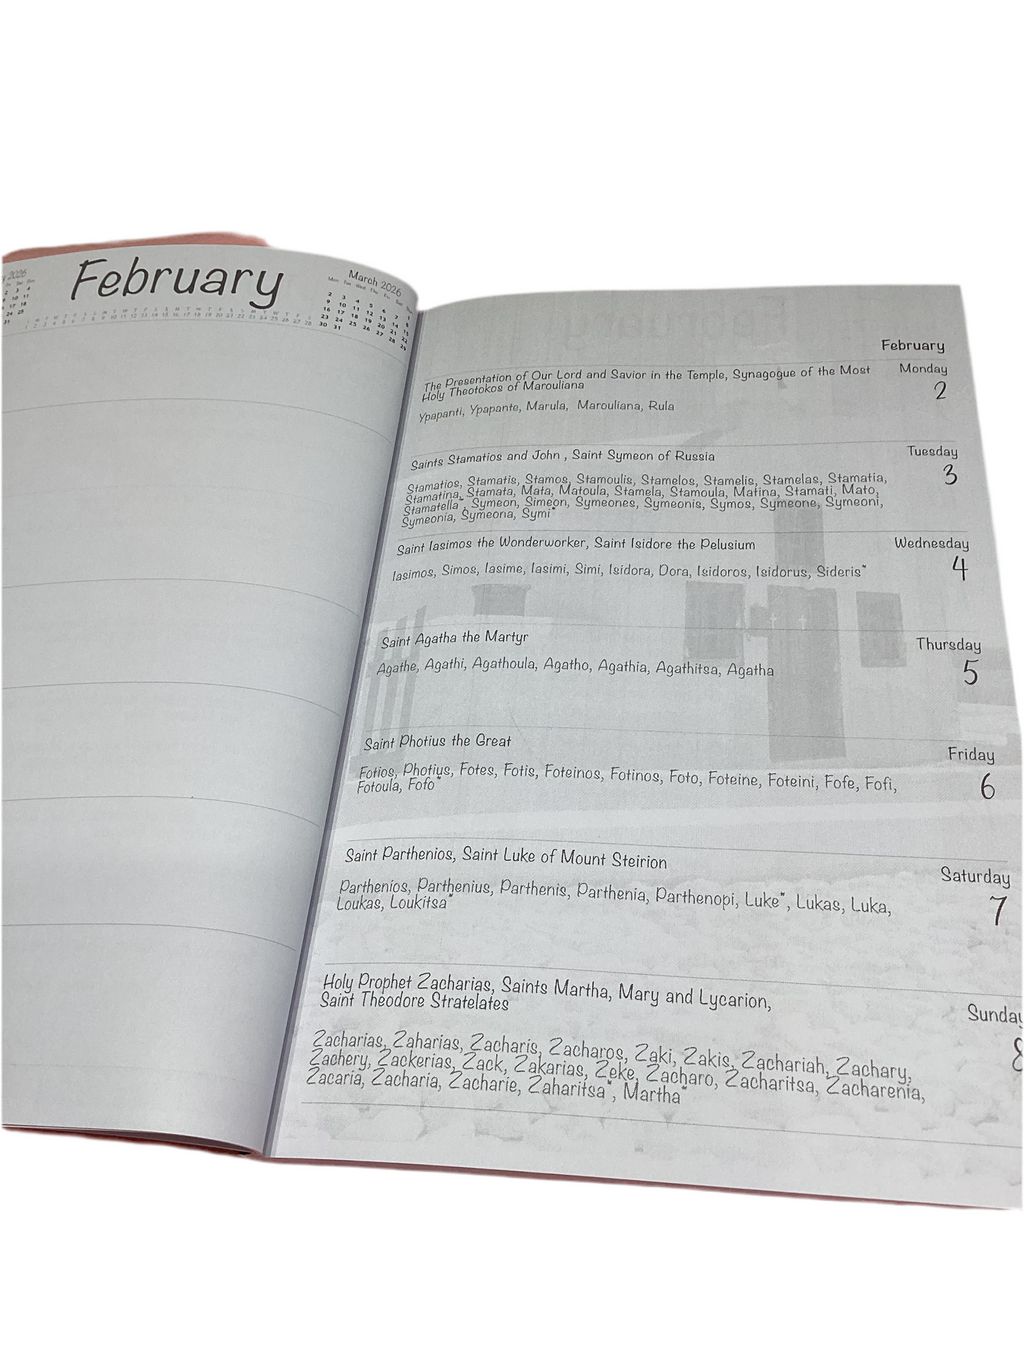 2026
February
March 2026
Mon Tue Wed Thu Fri Sat Sun
2 3 4 5 6 7 8
9 10 11 12 13 14 15
16 17 18 19 20 21 22
23 24 25 26 27 28 29
30 31
February
The Presentation of Our Lord and Savior in the Temple, Synagogue of the Most
Holy Theotokos of Marouliana
Monday
2
Ypapanti, Ypapante, Marula, Marouliana, Rula
Saints Stamatios and John , Saint Symeon of Russia
Tuesday
3
Stamatios, Stamatis, Stamos, Stamoulis, Stamelos, Stamelis, Stamelas, Stamatia,
Stamatina, Stamata, Mata, Matoula, Stamela, Stamoula, Matina, Stamati, Mato,
Stamatella*, Symeon, Simeon, Symeones, Symeonis, Symos, Symeone, Symeoni,
Symeonia, Symeona, Symi*
Saint Iasimos the Wonderworker, Saint Isidore the Pelusium
Wednesday
4
Iasimos, Simos, Iasime, Iasimi, Simi, Isidora, Dora, Isidoros, Isidorus, Sideris*
Saint Agatha the Martyr
Thursday
5
Agathe, Agathi, Agathoula, Agatho, Agathia, Agathitsa, Agatha
Saint Photius the Great
Friday
6
Fotios, Photius, Fotes, Fotis, Foteinos, Fotinos, Foto, Foteine, Foteini, Fofe, Fofi,
Fotoula, Fofo*
Saint Parthenios, Saint Luke of Mount Steirion
Saturday
7
Parthenios, Parthenius, Parthenis, Parthenia, Parthenopi, Luke*, Lukas, Luka,
Loukas, Loukitsa*
Holy Prophet Zacharias, Saints Martha, Mary and Lycarion,
Saint Theodore Stratelates
Sunday
8
Zacharias, Zaharias, Zacharis, Zacharos, Zaki, Zakis, Zachariah, Zachary,
Zachery, Zackerias, Zack, Zakarias, Zeke, Zacharo, Zacharitsa, Zacharenia,
Zacaria, Zacharia, Zacharie, Zaharitsa*, Martha*